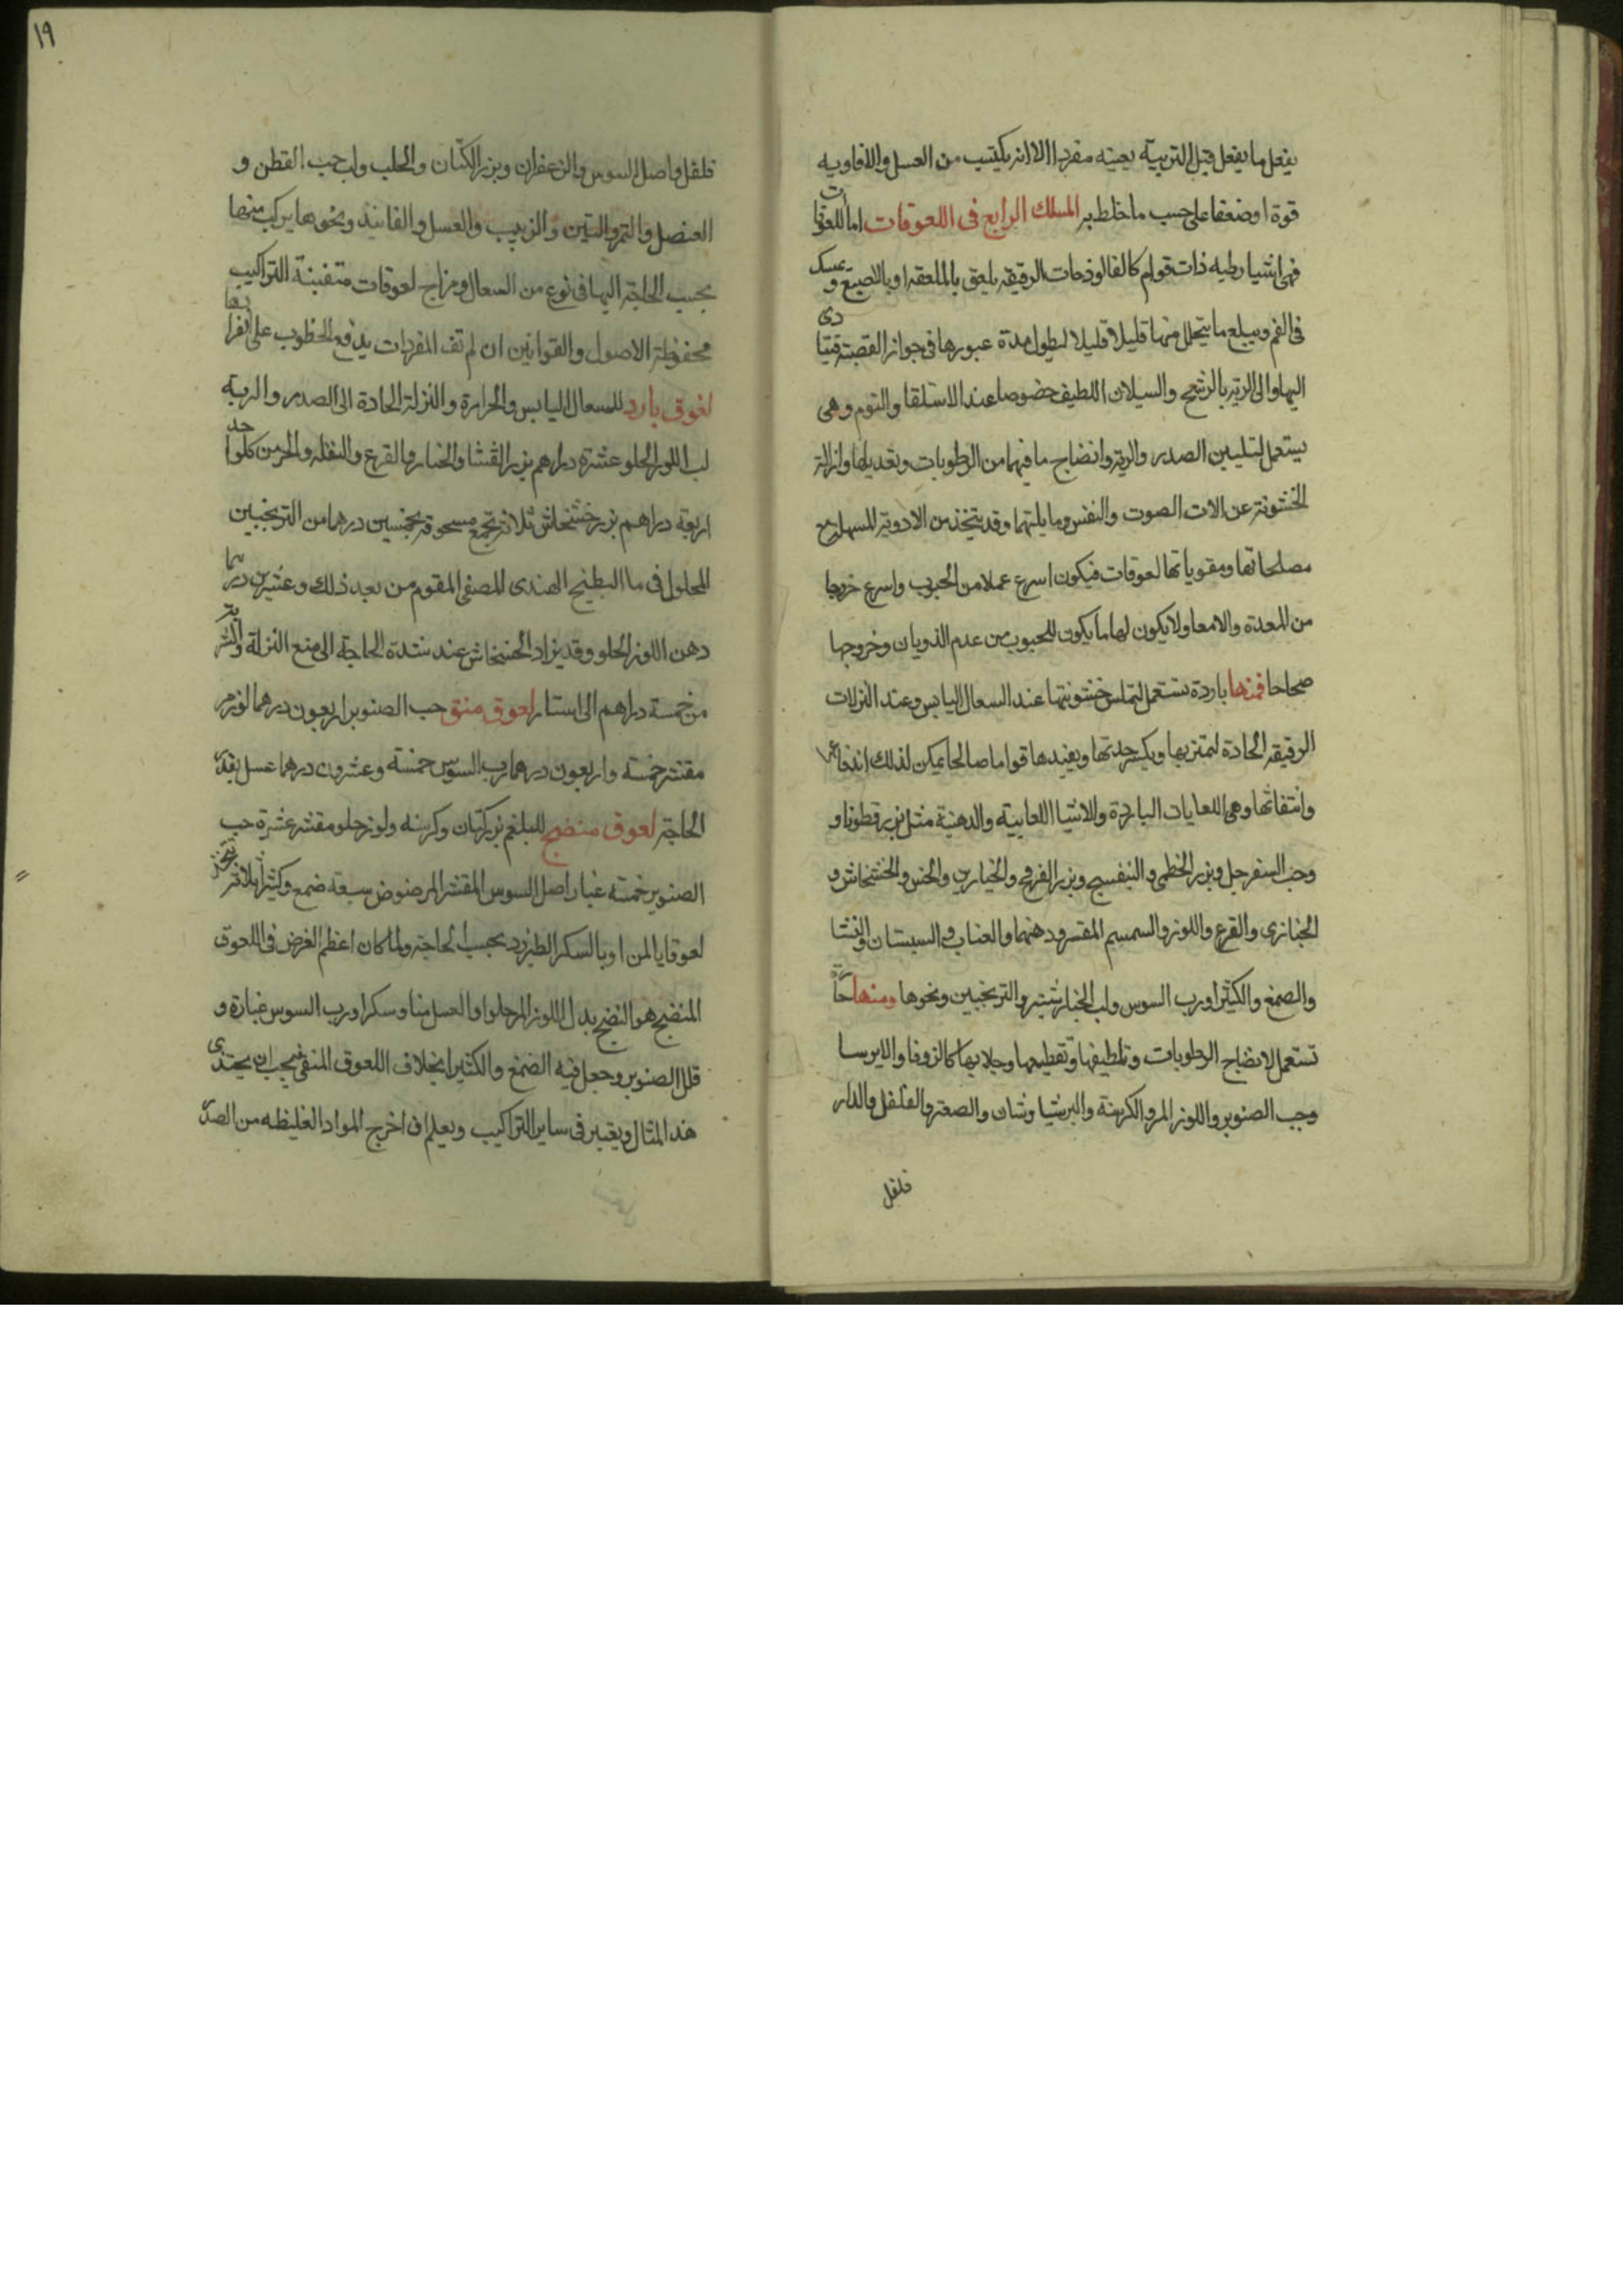 يفعل ما يفعل قبل التربية بعينه مفردا الا انه يكتسب من العسل والافاويه
قوة او ضعفا على حسب ما خلط به المسلك الرابع فى اللعوقات اما اللعوقات
فهى اشيا رطبه ذات قوام كالفالوذجات الرقيقه يلعق بالملعقه او بالاصبع ويمسك
فى الفم ويبلع ما يتحلل منها قليلا قليلا لطول مدة عبورها فى جواز القصبة فيتادى
اليها والى الريه بالرشح والسيلان اللطيف خصوصا عند الاستلقا والنوم وهى
يستعمل لتليين الصدر والريه وانضاج ما فيهما من الرطوبات وتعديلها وازالة
الخشونة عن الات الصوت والنفس وما يليهما وقد يتخذ من الادوية المسهلة مع
مصلحاتها ومقوياتها لعوقات فيكون اسرع عملا من الحبوب واسرع خروجا
من المعدة والامعا ولا يكون لها ما يكون للحبوب من عدم الذوبان وخروجها
صحاحا فمنها باردة تستعمل لتملس خشونتها عند السعال اليابس وعند النزلات
الرقيقه الحادة لتمتزبها ويكسر حدتها ويفيدها قواما صالحا يمكن لذلك اندفاعها
وانتفاثها وهى اللعابات الباردة والاشيا اللعابية والدهنية مثل بزر قطونا و
وحب السفرجل وبزر الخطمى والبنفسج وبزر الفرفخ والخيارين والخس والخشخاش و
الخبازى والقرع واللوز والسمسم المقشر ودهنهما والعناب والسبستان والنشا
والصمغ والكثيرا ورب السوس ولب الخيارشنبر والترنجبين ونحوها ومنها حارة
تستعمل لانضاج الرطوبات وتلطيفها وتقطيعها وجلايها كالزوفا والايرسا
وحب الصنوبر واللوز المر والكرسنة والبرشيا وشان والصعتر والفلفل والدار
فلفل
١٩
فلفل واصل السوس والزعفران وبزر الكتان والحلب ولب حب القطن و
العنصل والتمر والتين والزبيب والعسل والفانيذ ونحوها يركب منها
بحسب الحاجة اليها فى نوع من السعال ومزاج لعوقات متفننة التراكيب
محفوظة الاصول والقوانين ان لم تف المفردات بدفع الخطوب على انفرادها
لعوق بارد للسعال اليابس والحرارة والنزلة الحادة الى الصدر والرية
لب اللوز الحلو عشرة دراهم بزر القثا والخيار والقرع والبقلة والخس من كل واحد
اربعة دراهم بزر خشخاش ثلاثة يجمع مسحوقة بخمسين درهما من الترنجبين
المحلول فى ما البطيخ الهندى المصفى المقوم من بعد ذلك وعشرين درهما
دهن اللوز الحلو وقد يزاد الخشخاش عند شدة الحاجة الى منع النزلة والشربة
من خمسة دراهم الى استار لعوق منق حب الصنوبر اربعون درهما لوز مر
مقشر خمسة واربعون درهما رب السوس خمسة وعشرون درهما عسل بقدر
الحاجة لعوق منضج للبلغم بزر كتان وكرسنه ولوز حلو مقشر عشرة حب
الصنوبر خمسة غبار اصل السوس المقشر المرضوض سبعة صمغ وكثيرا ثلاثة يتخذ
لعوقا بالمن او بالسكر الطبرزد بحسب الحاجة ولما كان اعظم الغرض فى اللعوق
المنضج هو النضج بدل اللوز المر حلوا والعسل منا وسكرا ورب السوس غبارة و
قلل الصنوبر وجعل فيه الصمغ والكثيرا بخلاف اللعوق المنقى فيجب ان يحتذى
هذا المثال ويعتبر فى ساير التراكيب ويعلم ان اخرج المواد الغليظه من الصدر